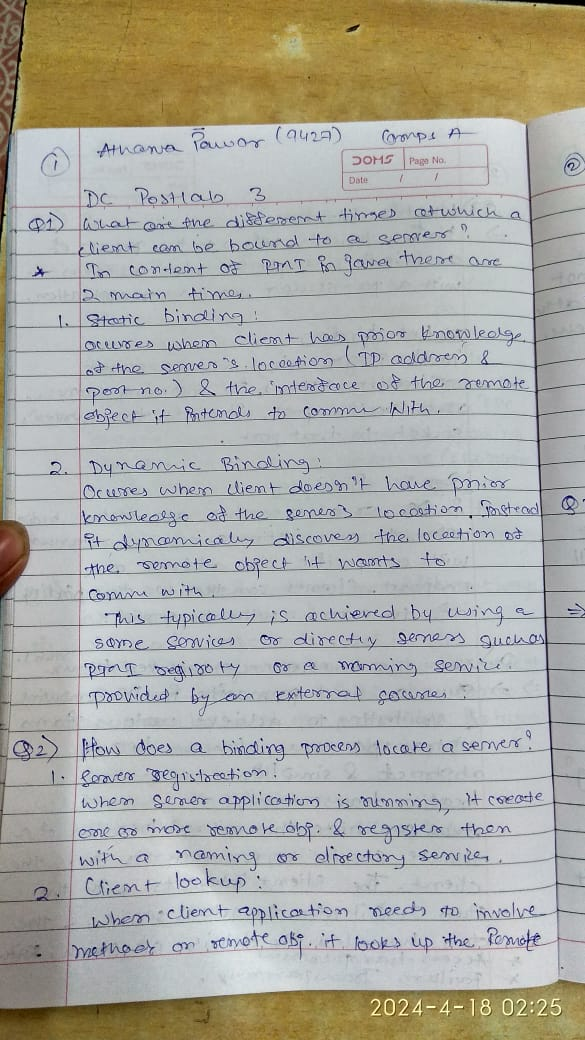 ①
Atharva Pawar (9427) Comps A
DOMS Page No.
Date / /
DC Postlab 3
Q1) What are the different times at which a
client can be bound to a server?
* In content of RMI in java there are
2 main times.
1. Static binding:
occures when client has prior knowledge
of the server's location (IP address &
port no.) & the interface of the remote
object it intends to commu with.
2. Dynamic Binding:
Ocures when client doesn't have prior
knowledge of the server's location. Instead
it dynamically discovers the location of
the remote object it wants to
commu with.
This typically is achieved by using a
some services or directly servers such as
RMI registry or a naming service
provided by an external sources.
Q2) How does a binding process locate a server?
1. Server registration:
When server application is running, it create
one or more remote obj. & register then
with a naming or directory services.
2. Client lookup:
When client application needs to involve
methods on remote obj. it looks up the Remote
②
Q
⇒
2024-4-18 02:25